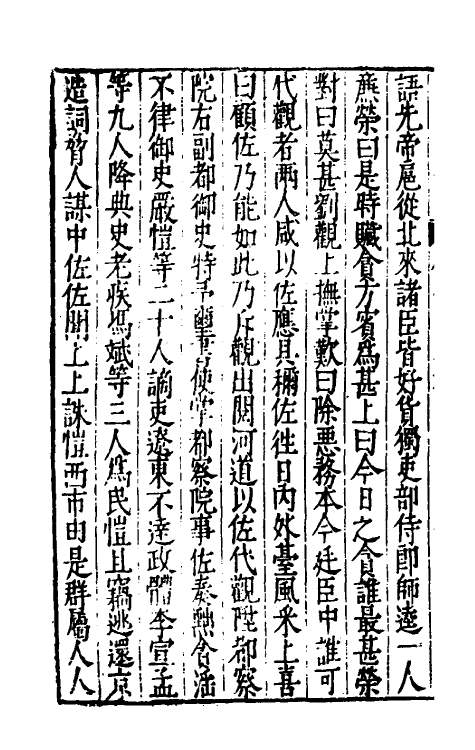 語先帝扈從北來諸臣皆好貨獨吏部侍郎師逵一人
廉榮曰是時贓貪方賓爲甚上曰今日之貪誰最甚榮
對曰莫甚劉觀上撫掌歎曰除惡務本今廷臣中誰可
代觀者兩人咸以佐應具稱佐往日內外臺風采上喜
曰顧佐乃能如此乃斥觀出閱河道以佐代觀陞都察
院右副都御史特予璽書使掌都察院事佐奏黜含潘
不律御史嚴愷等二十人謫吏遼東不達政體李宣孟
等九人降典史老疾馮斌等三人爲民愷且竊逃還京
造詞脅人謀中佐佐聞上上誅愷西市由是群屬人人